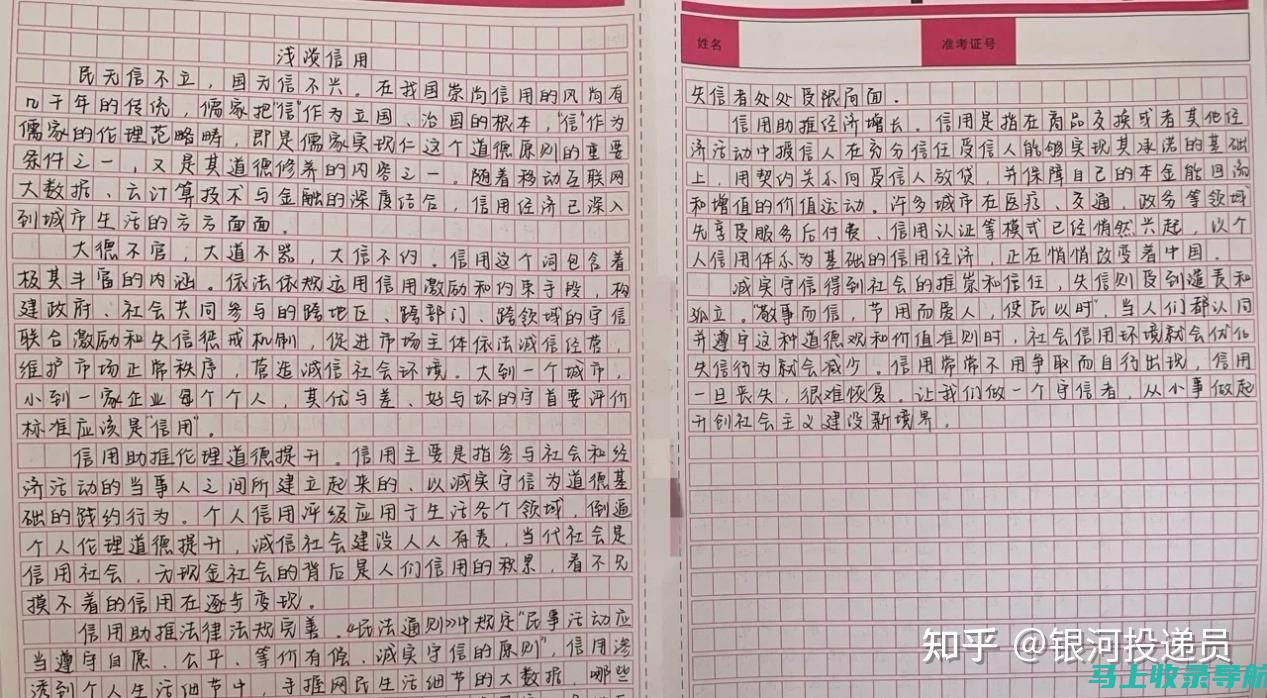 浅谈信用
民无信不立，国无信不兴。在我国崇尚信用的风尚有
几千年的传统，儒家把“信”作为立国、治国的根本，“信”作为
儒家的伦理范略畴，即是儒家实现仁这个道德原则的重要
条件之一，又是其道德修养的内容之一。随着移动互联网
大数据、云计算技术与金融的深度结合，信用经济已深入
到城市生活的方方面面。
大德不官，大道不器，大信不约。信用这个词包含着
极其丰富的内涵。依法依规运用信用激励和约束手段，构
建政府、社会共同参与的跨地区、跨部门、跨领域的守信
联合激励和失信惩戒机制，促进市场主体依法诚信经营，
维护市场正常秩序，营造诚信社会环境。大到一个城市，
小到一家企业每个个人，其优与差、好与坏的守首要评价
标准应该是“信用”。
信用助推伦理道德提升。信用主要是指参与社会和经
济活动的当事人之间所建立起来的、以诚实守信为道德基
础的践约行为。个人信用评级应用于生活各个领域，倒逼
个人伦理道德提升，诚信社会建设人人有责，当代社会是
信用社会，无现金社会的背后是人们信用的积累，看不见
摸不着的信用在逐步变现。
信用助推法律法规完善。《民法通则》中规定“民事活动应
当遵守自愿、公平、等价有偿、诚实守信的原则”，信用渗
透到个人生活细节中，手握网民生活细节的大数据，哪些
姓名
准考证号
失信者处处受限局面。
信用助推经济增长。信用是指在商品交换或者其他经
济活动中授信人在充分信任受信人能够实现其承诺的基础
上，用契约关系向受信人放贷，并保障自己的本金能回流
和增值的价值运动。许多城市在医疗、交通，政务等领域
先享受服务后付费、信用认证等模式已经悄然兴起，以个
人信用体系为基础的信用经济，正在悄悄改变着中国。
诚实守信得到社会的推崇和信任，失信则受到谴责和
孤立。“敬事而信，节用而爱人，使民以时”，当人们都认同
并遵守这种道德观和价值准则时，社会信用环境就会优化
失信行为就会减少。信用常常不用争取而自行出现，信用
一旦丧失，很难恢复。让我们做一个守信者，从小事做起
开创社会主义建设新境界。
知乎 @银河投递员
马上收录导航